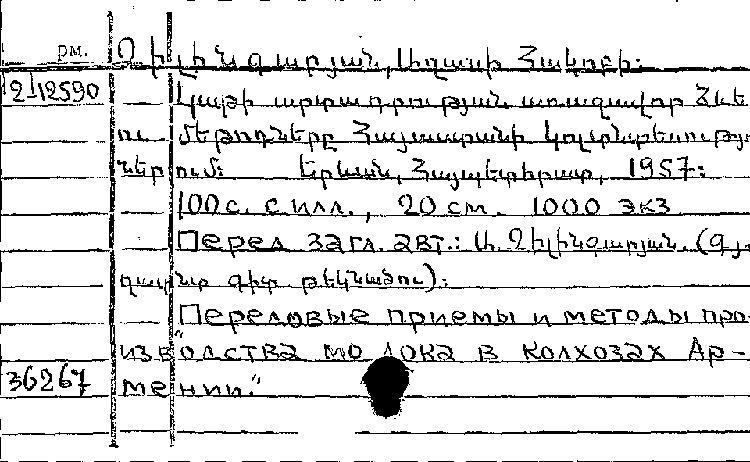 рм. Չիլինգարյան, Աղասի Հակոբի:
2-12590 Կաթի արտադրության առաջավոր ձևե
ու մեթոդները Հայաստանի կոլտնտեսությու
ներում: Երևան, Հայպետհրատ, 1957:
100 с. с илл., 20 см. 1000 экз
Перед загл. авт.: Ա. Չիլինգարյան. (գյ.
ղատնտ գիտ թեկնածու):
"Передовые приемы и методы про-
изводства молока в колхозах Ар-
36267 мении."